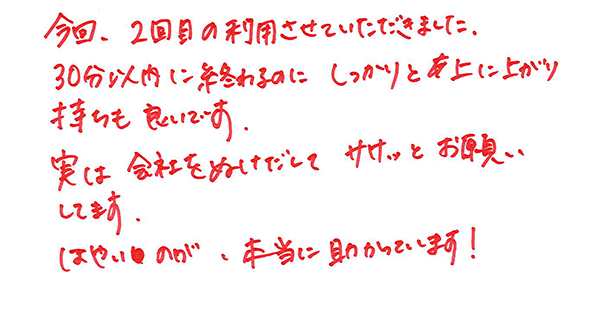 今回、2回目の利用させていただきました。
30分以内に終わるのに しっかりと 右上に上がり
持ちも 良いです。
実は 会社をぬけだして ササッと お願い
してます。
はやいのが、本当に助かっています!